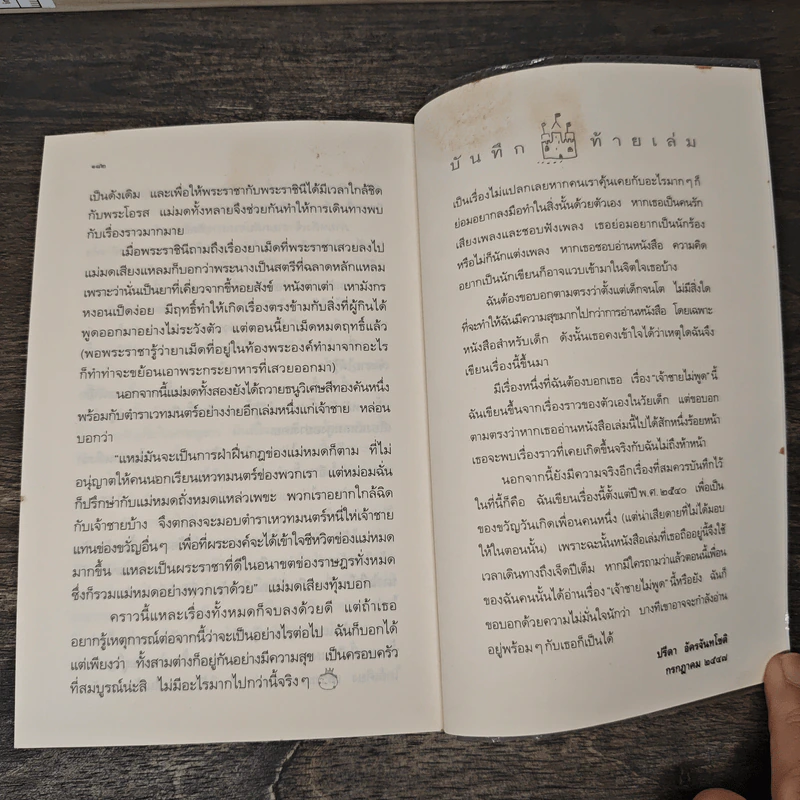 ๑๘๒
เป็นดังเดิม และเพื่อให้พระราชากับพระราชินีได้มีเวลาใกล้ชิด
กับพระโอรส แม่มดทั้งหลายจึงช่วยกันทำให้การเดินทางพบ
กับเรื่องราวมากมาย
เมื่อพระราชินีถามถึงเรื่องยาเม็ดที่พระราชาเสวยลงไป
แม่มดเสียงแหลมก็บอกว่าพระนางเป็นสตรีที่ฉลาดหลักแหลม
เพราะว่านั่นเป็นยาที่เคี่ยวจากขี้หอยสังข์ หนังตาเต่า เหามังกร
หงอนเป็ดง่อย มีฤทธิ์ทำให้เกิดเรื่องตรงข้ามกับสิ่งที่ผู้กินได้
พูดออกมาอย่างไม่ระวังตัว แต่ตอนนี้ยาเม็ดหมดฤทธิ์แล้ว
(พอพระราชารู้ว่ายาเม็ดที่อยู่ในท้องพระองค์ทำมาจากอะไร
ก็ทำท่าจะขย้อนเอาพระกระยาหารที่เสวยออกมา)
นอกจากนี้แม่มดทั้งสองยังได้ถวายธนูวิเศษสีทองคันหนึ่ง
พร้อมกับตำราเวทมนตร์อย่างง่ายอีกเล่มหนึ่งแก่เจ้าชาย หล่อน
บอกว่า
“แหม่มันจะเป็นการฝ่าฝืนกฎของแม่หมดก็ตาม ที่ไม่
อนุญาตให้คนนอกเรียนเหวทมนตร์ของพวกเรา แต่หม่อมฉั่น
ก็ปรึกษ่ากับแม่หมดถั่งหมดแหล่วเพขะ พวกเราอยากไกล้ฉิด
กับเจ้าชายบ้าง จึงตกลงจะมอบตำราเหวทมนตร์หนี่ให้เจ้าชาย
แทนช่องขวั่ญอื่นๆ เพื่อที่พระองค์จะได้เข้าใจชีหวิตช่องแม่หมด
มากขึ้น แหละเป็นพระราชาที่ดีในอนาขตช่องราษฎรทั่งหมด
ซึ่งก็รวมแม่หมดอย่างพวกเราด้วย” แม่มดเสียงทุ้มบอก
คราวนี้แหละเรื่องทั้งหมดก็จบลงด้วยดี แต่ถ้าเธอ
อยากรู้เหตุการณ์ต่อจากนี้ว่าจะเป็นอย่างไรต่อไป ฉันก็บอกได้
แต่เพียงว่า ทั้งสามต่างก็อยู่กันอย่างมีความสุข เป็นครอบครัว
ที่สมบูรณ์น่ะสิ ไม่มีอะไรมากไปกว่านี้จริงๆ
บันทึก ท้ายเล่ม
เป็นเรื่องไม่แปลกเลยหากคนเราคุ้นเคยกับอะไรมากๆ ก็
ย่อมอยากลงมือทำในสิ่งนั้นด้วยตัวเอง หากเธอเป็นคนรัก
เสียงเพลงและชอบฟังเพลง เธอย่อมอยากเป็นนักร้อง
หรือไม่ก็นักแต่งเพลง หากเธอชอบอ่านหนังสือ ความคิด
อยากเป็นนักเขียนก็อาจแวบเข้ามาในจิตใจเธอบ้าง
ฉันต้องขอบอกตามตรงว่าตั้งแต่เด็กจนโต ไม่มีสิ่งใด
ที่จะทำให้ฉันมีความสุขมากไปกว่าการอ่านหนังสือ โดยเฉพาะ
หนังสือสำหรับเด็ก ดังนั้นเธอคงเข้าใจได้ว่าเหตุใดฉันจึง
เขียนเรื่องนี้ขึ้นมา
มีเรื่องหนึ่งที่ฉันต้องบอกเธอ เรื่อง “เจ้าชายไม่พูด” นี้
ฉันเขียนขึ้นจากเรื่องราวของตัวเองในวัยเด็ก แต่ขอบอก
ตามตรงว่าหากเธออ่านหนังสือเล่มนี้ไปได้สักหนึ่งร้อยหน้า
เธอจะพบเรื่องราวที่เคยเกิดขึ้นจริงกับฉันไม่ถึงห้าหน้า
นอกจากนี้ยังมีความจริงอีกเรื่องที่สมควรบันทึกไว้
ในที่นี้ก็คือ ฉันเขียนเรื่องนี้ตั้งแต่ปี พ.ศ. ๒๕๔๐ เพื่อเป็น
ของขวัญวันเกิดเพื่อนคนหนึ่ง (แต่น่าเสียดายที่ไม่ได้มอบ
ให้ในตอนนั้น) เพราะฉะนั้นหนังสือเล่มที่เธอถืออยู่นี้จึงใช้
เวลาเดินทางถึงเจ็ดปีเต็ม หากมีใครถามว่าแล้วตอนนี้เพื่อน
ของฉันคนนั้นได้อ่านเรื่อง “เจ้าชายไม่พูด” นี้หรือยัง ฉันก็
ขอบอกด้วยความไม่มั่นใจนักว่า บางทีเขาอาจจะกำลังอ่าน
อยู่พร้อมๆ กับเธอก็เป็นได้
ปรีดา อัครจันทโชติ
กรกฎาคม ๒๕๔๗